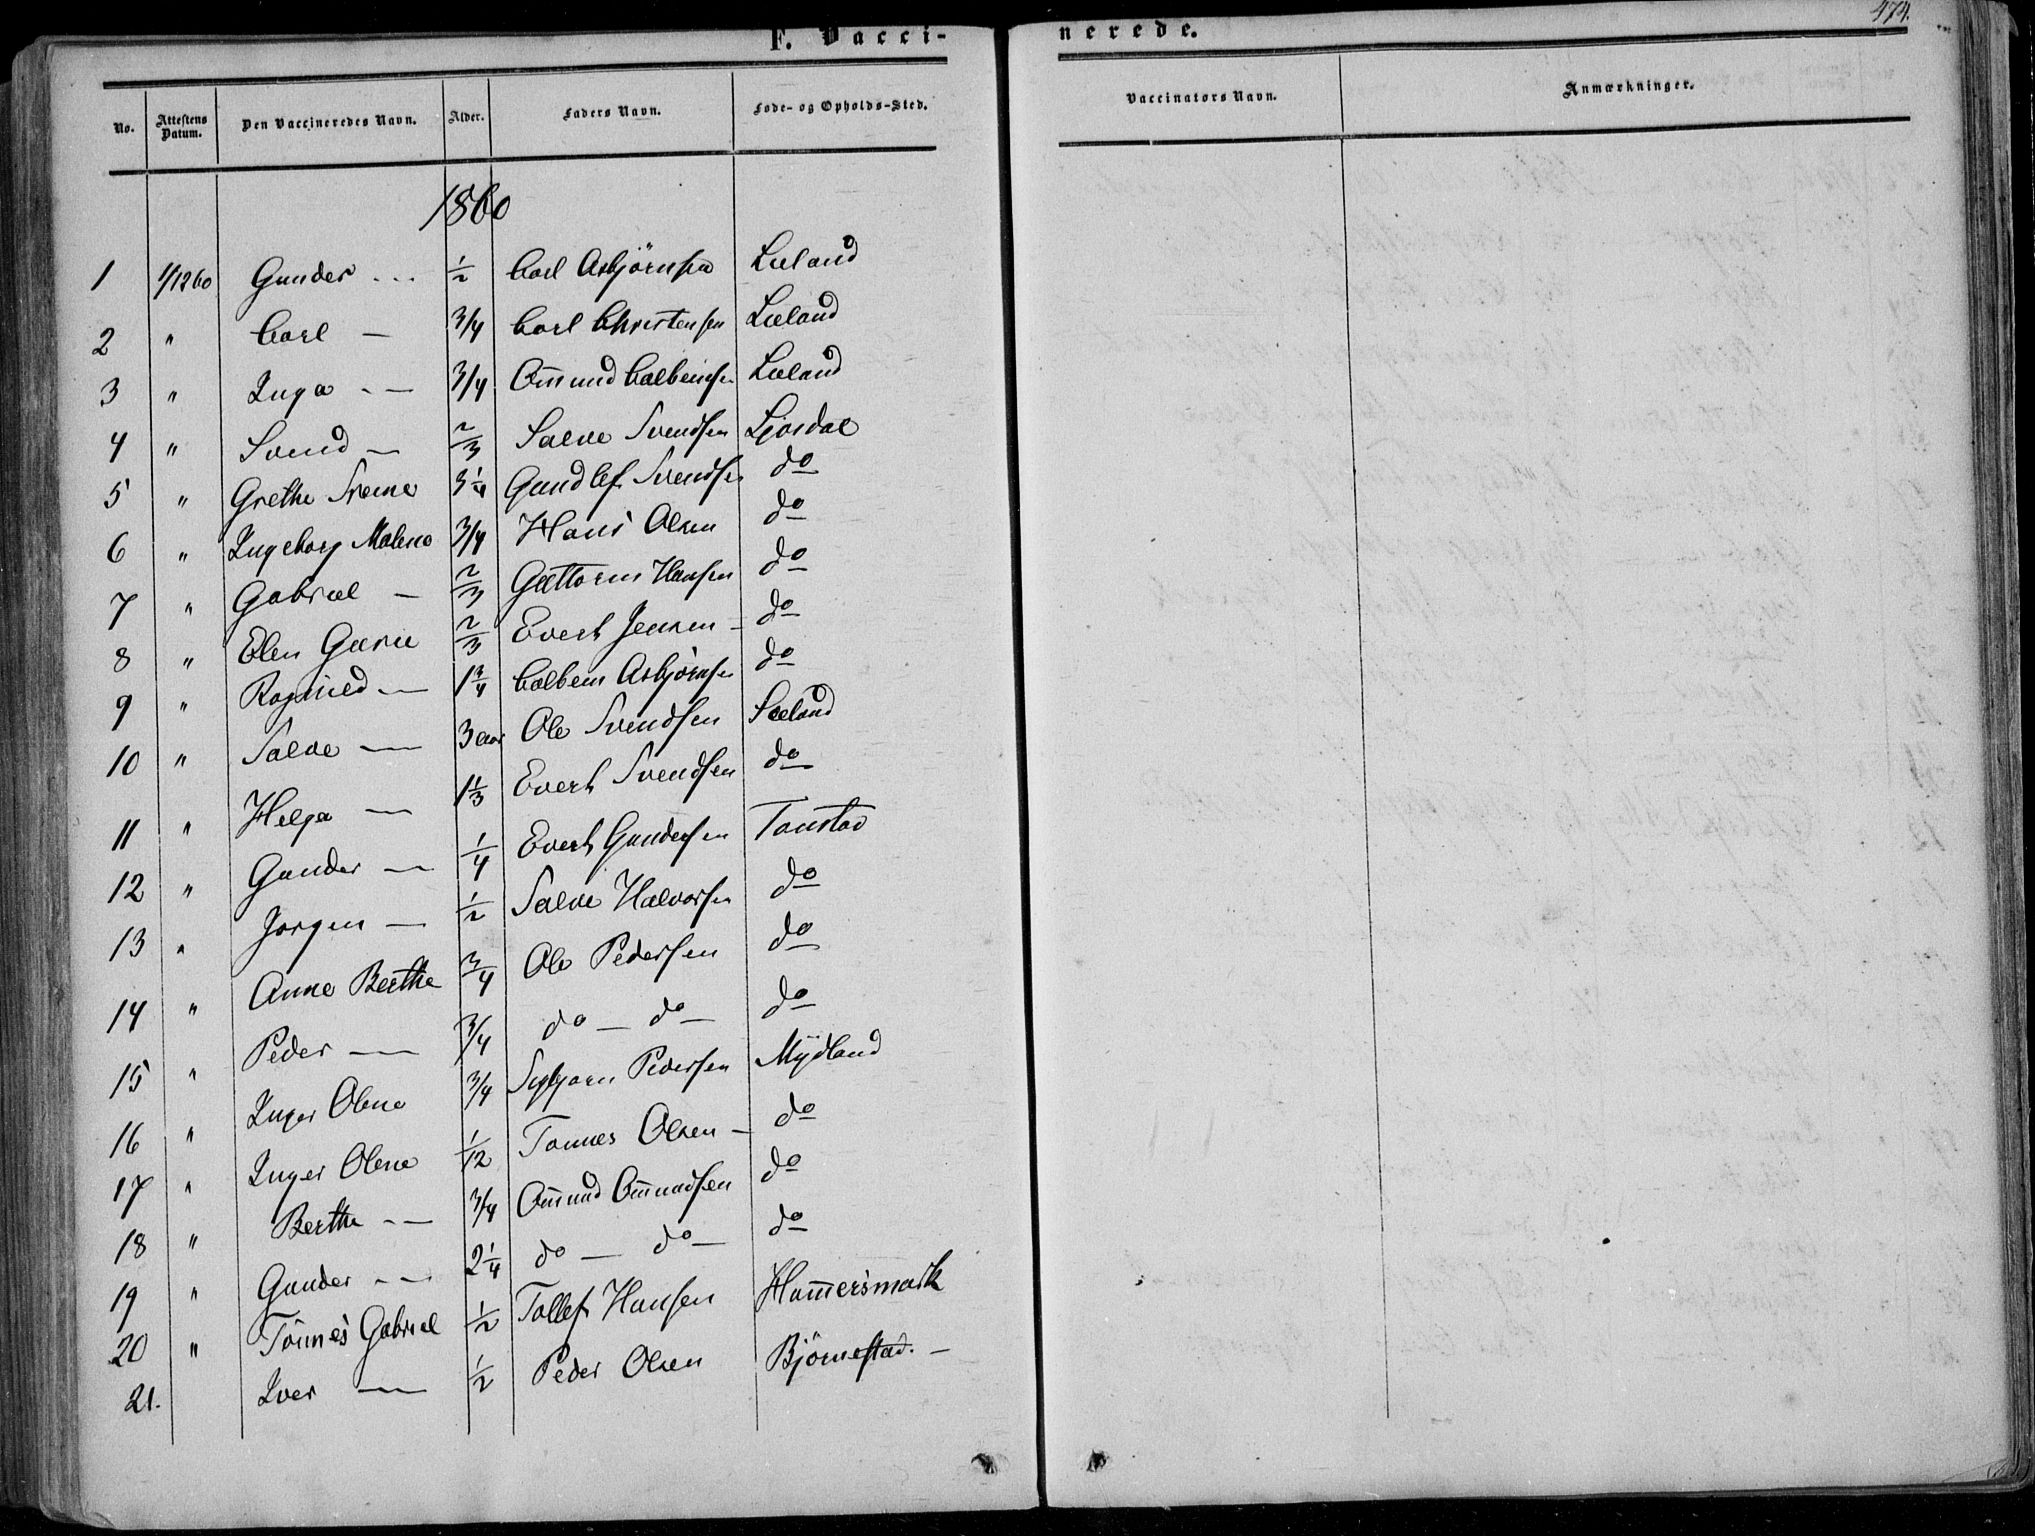 F. Vacci-
nerede.
474.
No. Attestens Datum. Den Vaccineredes Navn. Alder. Faders Navn. Føde- og Opholds-Sted.
Vaccinators Navn. Anmærkninger.
1860
1 1/12 60 Gunder - - - 1/2 Carl Asbjörnsen Lieland
2 " Carl — 3/4 Carl Christensen Lieland
3 " Inga - — 3/4 Om̄und Calbeinsen Lieland
4 " Svend — 2/3 Salve Svendsen Ljosdal
5 " Grethe Sveine 3 1/4 Gundlef Svendsen do
6 " Ingeborg Malene 3/4 Hans Olsen do
7 " Gabriel — 2/3 Guttorm Hansen do
8 " Elen Gurie 2/3 Evert Jensen — do
9 " Ragnild — 1 3/4 Calbein Asbjørnsen do
10 " Salve — 3 aar Ole Svendsen Sieland
11 " Helga — 1 1/3 Evert Svendsen do
12 " Gunder — 1/4 Evert Gundersen Tonstad
13 " Jorgen — 1/2 Salve Halvorsen do
14 " Anne Berthe 3/4 Ole Pedersen do
15 " Peder — 3/4 do — do — do
16 " Inger Olene 3/4 Sigbjorn Pedersen Mÿdland
17 " Inger Olene 1/12 Tonnes Olsen — do
18 " Berthe - — 3/4 Om̄und Om̄undsen do
19 " Gunder - — 2 1/4 do — do — do
20 " Tönnes Gabriel 1/2 Tollef Hansen Ham̄ersmark
21. Iver — 1/2 Peder Olsen Björnestad. —